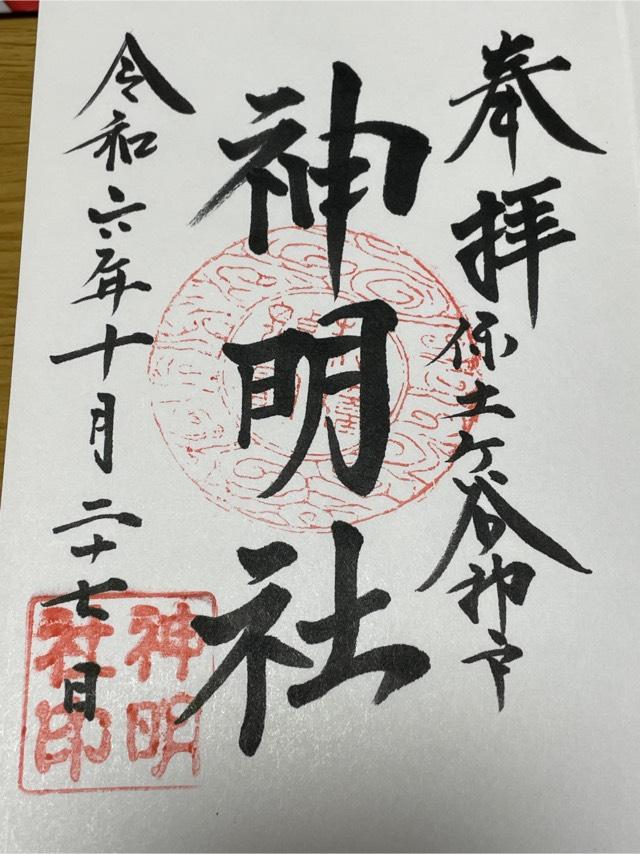 奉拝
保土ケ谷神戸
神明社
令和六年十月二十七日
神明
社印